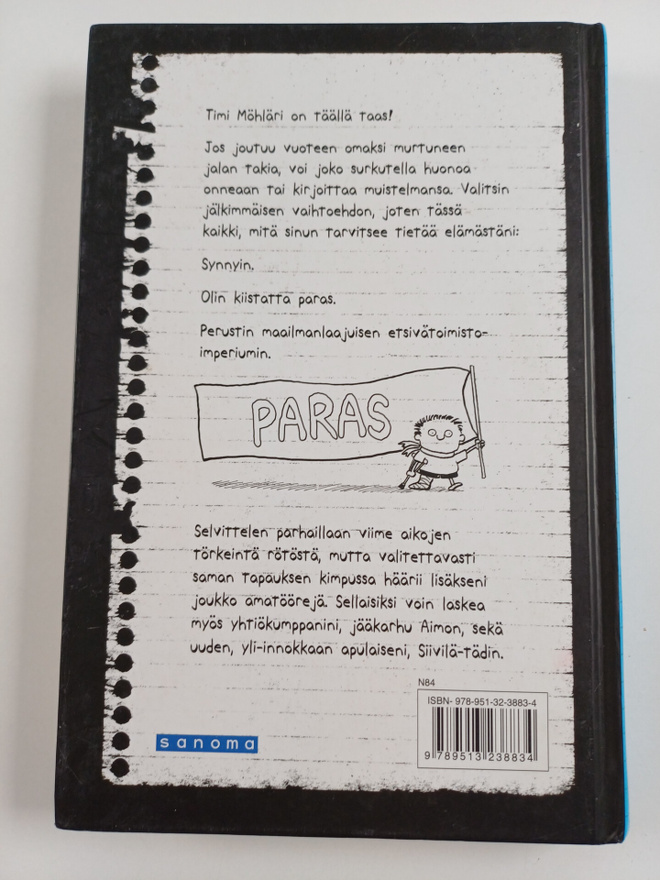 Timi Möhläri on täällä taas!
Jos joutuu vuoteen omaksi murtuneen
jalan takia, voi joko surkutella huonoa
onneaan tai kirjoittaa muistelmansa. Valitsin
jälkimmäisen vaihtoehdon, joten tässä
kaikki, mitä sinun tarvitsee tietää elämästäni:
Synnyin.
Olin kiistatta paras.
Perustin maailmanlaajuisen etsivätoimisto-
imperiumin.
PARAS
Selvittelen parhaillaan viime aikojen
törkeintä rötöstä, mutta valitettavasti
saman tapauksen kimpussa häärii lisäkseni
joukko amatöörejä. Sellaisiksi voin laskea
myös yhtiökumppanini, jääkarhu Aimon, sekä
uuden, yli-innokkaan apulaiseni, Siivilä-tädin.
N84
ISBN- 978-951-32-3883-4
sanoma
9 789513 238834